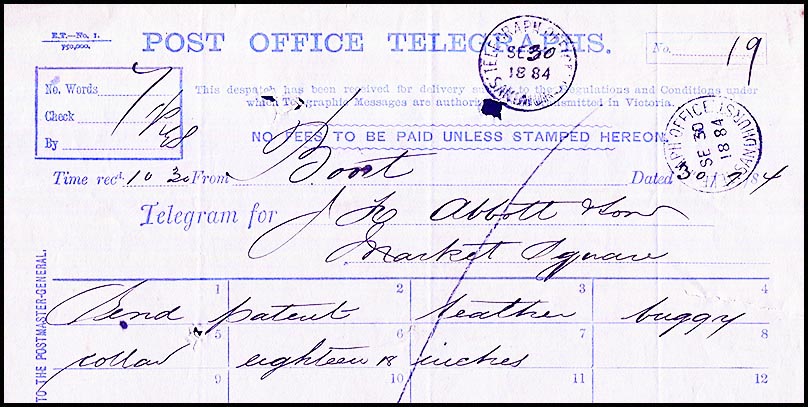 R.T.—No. 1.
750,000.
POST OFFICE TELEGRAPHS.
No. 19
TELEGRAPH OFFICE
SE 30
18 84
SANDHURST
This despatch has been received for delivery subject to the Regulations and Conditions under
which Telegraphic Messages are authorised to be transmitted in Victoria.
No. Words 7
Check
By
NO FEES TO BE PAID UNLESS STAMPED HEREON
TELEGRAPH OFFICE
SE 30
18 84
SANDHURST
Time recd. 10 30 From Boort Dated 30 / 9 / 84
Telegram for J H Abbott & Son
Market Square
TO THE POSTMASTER-GENERAL.
1 2 3 4
Send patent leather buggy
5 6 7 8
collar eighteen 18 inches
9 10 11 12